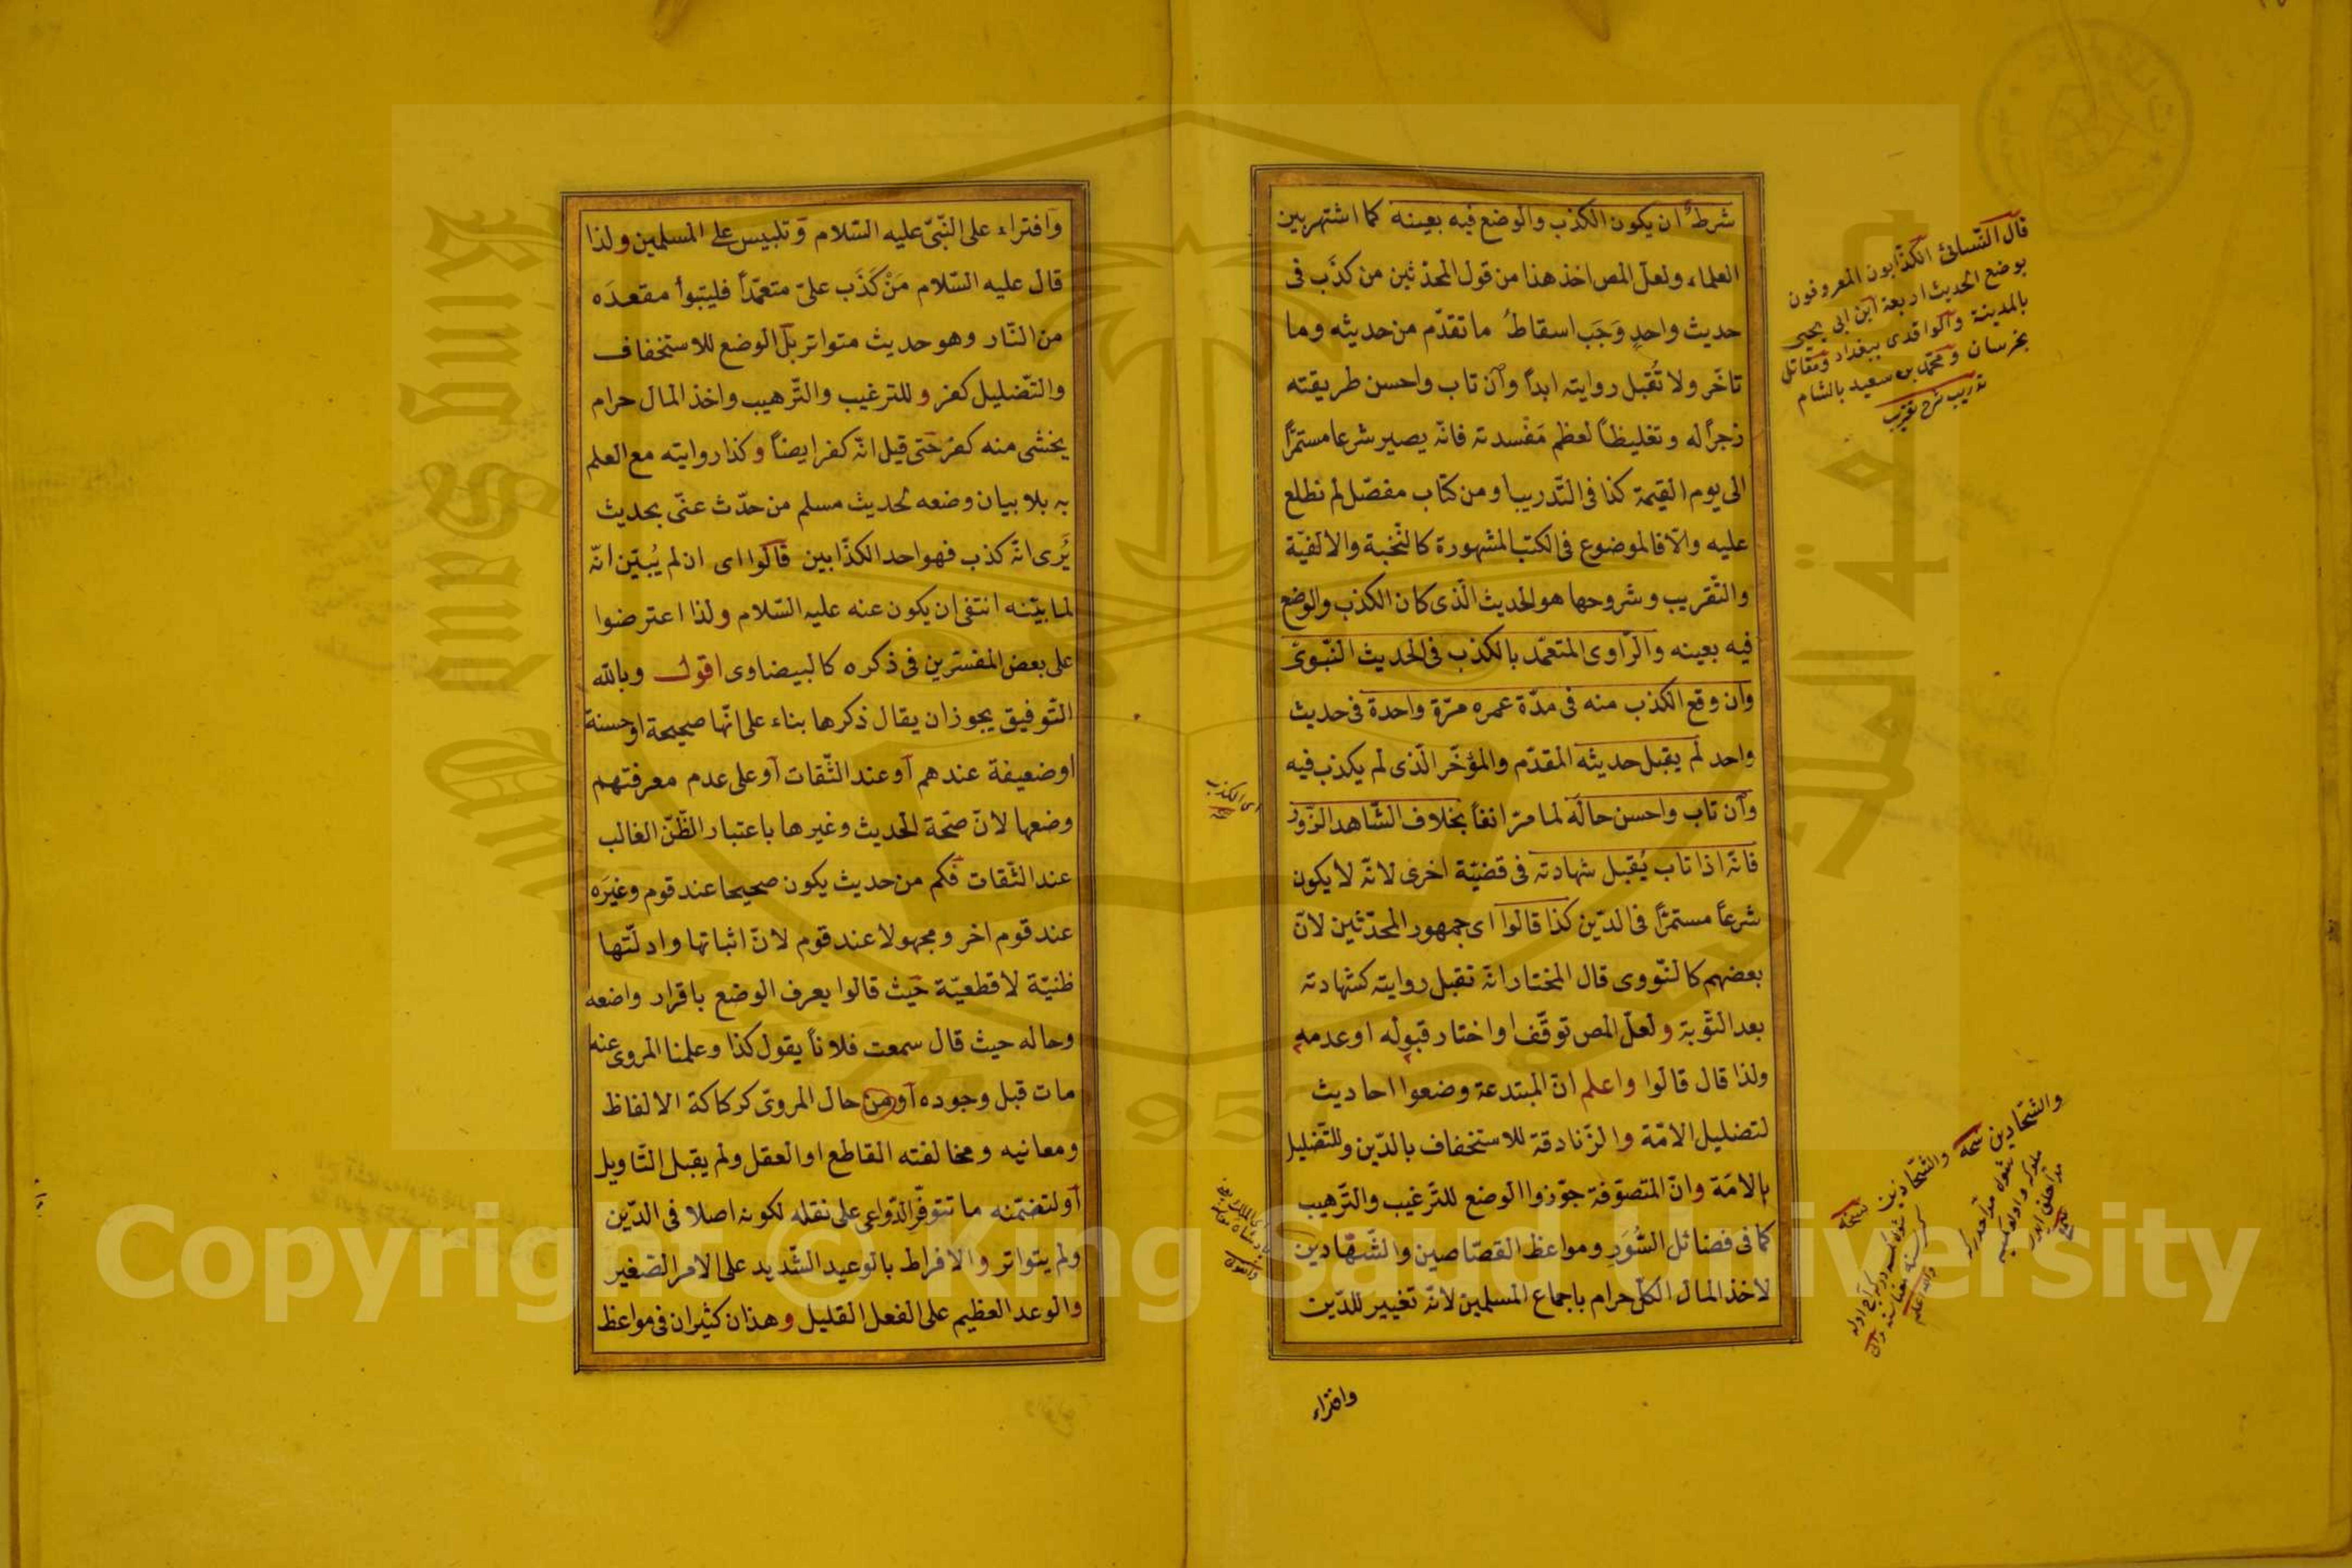 شرط ان يكون الكذب والوضع فيه بعينه كما اشتهر بين
العلماء ولعل المص اخذ هذا من قول المحدثين من كذب فى
حديث واحدٍ وَجَب اسقاطُ ما تقدّم من حديثه وما
تاخّر ولا تُقبل روايته ابداً وآن تاب واحسن طريقته
زجراً له وتغليظاً لعظم مَفْسدته فانّه يصير شرعا مستمرًّا
الى يوم القيمة كذا فى التّدريب او من كتاب مفصّل لم نطلع
عليه والّا فالموضوع فى الكتب المشهورة كالنّخبة والالفيّة
والتّقريب وشروحها هو الحديث الّذى كان الكذب والوضع
فيه بعينه والرّاوى المتعمّد بالكذب فى الحديث النّبوىّ
وان وقع الكذب منه فى مدّة عمره مرّة واحدة فى حديث
واحد لم يقبل حديثه المقدّم والمؤخّر الّذى لم يكذب فيه
وآن تاب واحسن حاله لما مرّ انفاً بخلاف الشّاهد الزّور
فانّه اذا تاب يُقبل شهادته فى قضيّة اخرى لانّه لا يكون
شرعاً مستمرًّا فى الدّين كذا قالوا اى جمهور المحدّثين لانّ
بعضهم كالنّووى قال المختار انّه تقبل روايته كشهادته
بعد التّوبة ولعلّ المص توقّف او اختار قبوله او عدمه
ولذا قال قالوا واعلم انّ المبتدعة وضعوا احاديث
لتضليل الامّة والزّنادقة للاستخفاف بالدّين وللتّضليل
بالامّة وانّ المتصوّفة جوّزوا الوضع للتّرغيب والتّرهيب
كما فى فضائل السُّوَرِ ومواعظ القصّاصين والشّحّادين
لاخذ المال الكلّ حرام باجماع المسلمين لانّه تغيير للدّين
وافتراء
قال النّسائى الكذّابون المعروفون
بوضع الحديث اربعة ابن ابى يحيى
بالمدينة والواقدى ببغداد ومقاتل
بخرسان ومحمّد بن سعيد بالشام
تدريب شرح تقريب
اى الكذب
والشحّادين نسخه
والشحّاذين نسخه
والله اعلم
وآفتراء على النّبىّ عليه السّلام وتلبيس على المسلمين ولذا
قال عليه السّلام مَنْ كَذَب علىّ متعمّداً فليتبوأ مقعدَه
من النّار وهو حديث متواتر بل الوضع للاستخفاف
والتّضليل كفر وللترغيب والتّرهيب واخذ المال حرام
يخشى منه كفر حتى قيل انّه كفر ايضاً وكذا روايته مع العلم
به بلا بيان وضعه لحديث مسلم من حدّث عنّى بحديث
يُرى انّه كذب فهو احد الكذّابين قالوا اى ان لم يُبيّن انّه
لما بيّنه انتفى ان يكون عنه عليه السّلام ولذا اعترضوا
على بعض المفسّرين فى ذكره كالبيضاوى اقول وبالله
التّوفيق يجوز ان يقال ذكرها بناء على انّها صحيحة او حسنة
او ضعيفة عندهم آو عند الثّقات آو على عدم معرفتهم
وضعها لانّ صحّة الحديث وغيرها باعتبار الظّنّ الغالب
عند الثّقات فكم من حديث يكون صحيحا عند قوم وغيَره
عند قوم اخر ومجهولا عند قوم لانّ اثباتها وادلّتها
ظنيّة لا قطعيّة حيث قالوا يعرف الوضع باقرار واضعه
وحاله حيث قال سمعت فلاناً يقول كذا وعلمنا المروى عنه
مات قبل وجوده آو من حال المروىّ كركاكة الالفاظ
ومعانيه ومخالفته القاطع او العقل ولم يقبل التّاويل
آو لتضمّنه ما تتوفّر الدّواعى على نقله لكونه اصلا فى الدّين
ولم يتواتر والافراط بالوعيد الشّديد على الامر الصّغير
والوعد العظيم على الفعل القليل وهذان كثيران فى مواعظ
Copyright © King Saud University
1957